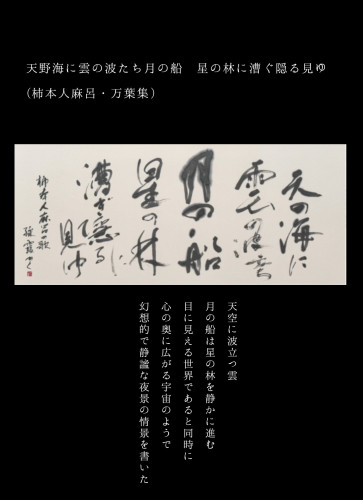 天野海に雲の波たち月の船　星の林に漕ぐ隠る見ゆ
(柿本人麻呂・万葉集)
天の海に
雲の波立
月の船
星の林
漕ぎ隠る
見ゆ
柿本人麻呂の歌
天空に波立つ雲
月の船は星の林を静かに進む
目に見える世界であると同時に
心の奥に広がる宇宙のようで
幻想的で静謐な夜景の情景を書いた